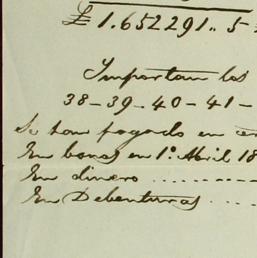 £ 1.652291.. 5
Importan los
38-39-40-41-
Se han pagado en
En bonos en 1º. Abril 18
En dinero ..........
En Debenturas ....